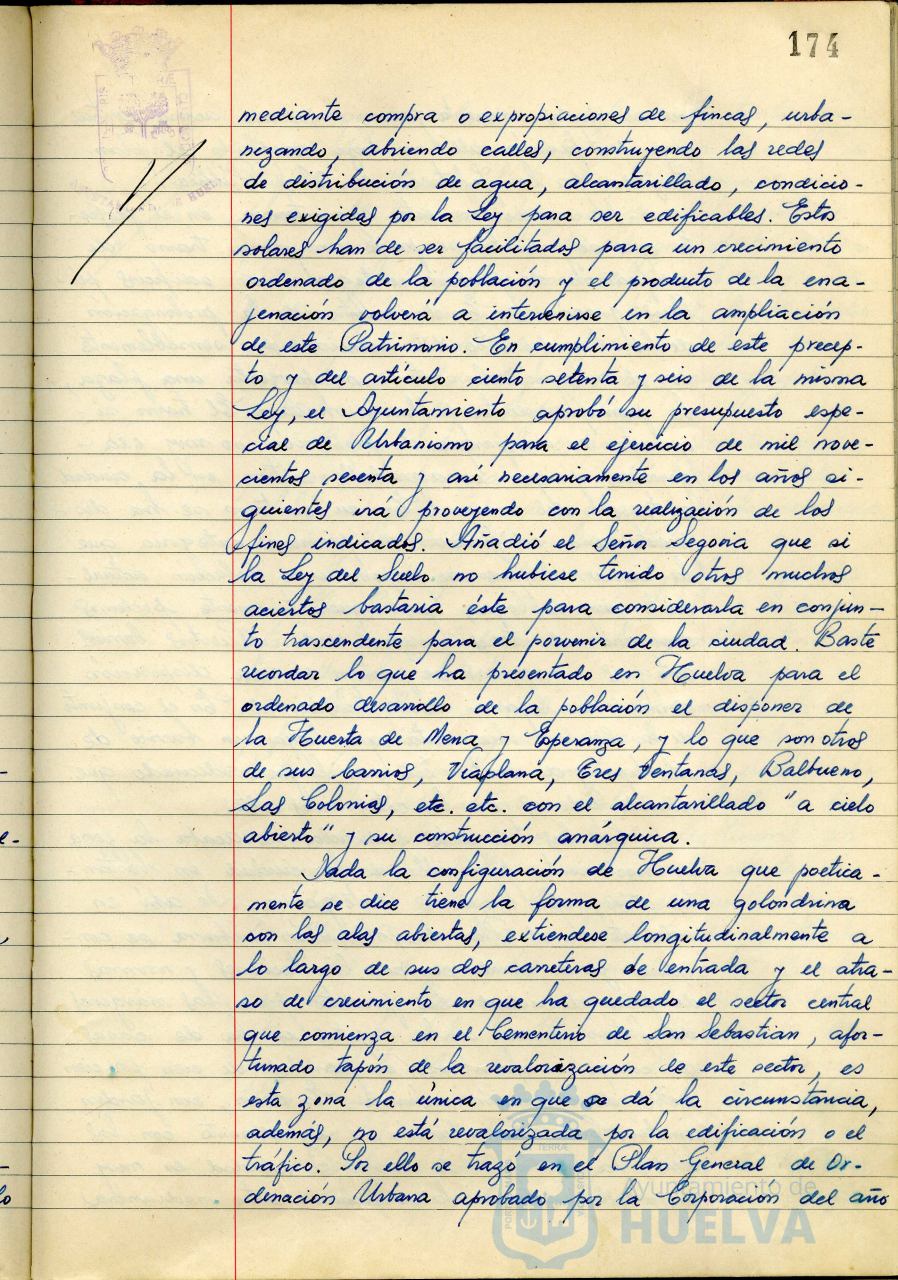 174
mediante compra o expropiaciones de fincas, urba-
nizando, abriendo calles, construyendo las redes
de distribución de agua, alcantarillado, condicio-
nes exigidas por la Ley para ser edificables. Estos
solares han de ser facilitados para un crecimiento
ordenado de la población y el producto de la ena-
jenación volverá a intervenirse en la ampliación
de este Patrimonio. En cumplimiento de este precep-
to y del artículo ciento setenta y seis de la misma
Ley, el Ayuntamiento aprobó su presupuesto espe-
cial de Urbanismo para el ejercicio de mil nove-
cientos sesenta y así necesariamente en los años si-
guientes irá proveyendo con la realización de los
fines indicados. Añadió el Señor Segovia que si
la Ley del Suelo no hubiese tenido otros muchos
aciertos bastaria éste para considerarla en conjun-
to trascendente para el porvenir de la ciudad. Baste
recordar lo que ha presentado en Huelva para el
ordenado desarrollo de la población el disponer de
la Huerta de Mena y Esperanza, y lo que son otros
de sus barrios, Viaplana, Tres Ventanas, Balbueno,
Las Colonias, etc. etc. con el alcantarillado "a cielo
abierto" y su construcción anárquica.
Dada la configuración de Huelva que poetica-
mente se dice tiene la forma de una golondrina
con las alas abiertas, extiendese longitudinalmente a
lo largo de sus dos carreteras de entrada y el atra-
so de crecimiento en que ha quedado el sector central
que comienza en el Cementerio de San Sebastian, afor-
tunado tapón de la revalorización de este sector, es
esta zona la única en que se dá la circunstancia,
además, no está revalorizada por la edificación o el
tráfico. Por ello se trazó en el Plan General de Or-
denación Urbana aprobado por la Corporación del año
Ayuntamiento de
HUELVA